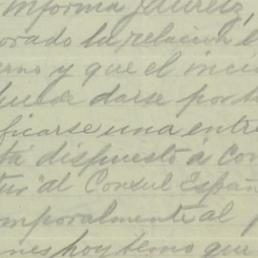 informa Juarez,
orado la relacion
erno y que el inci
puede darse por t
ficarse una entre
tá dispuesto á con
tur al Consul Españ
mporalmente al
nes hoy temo que